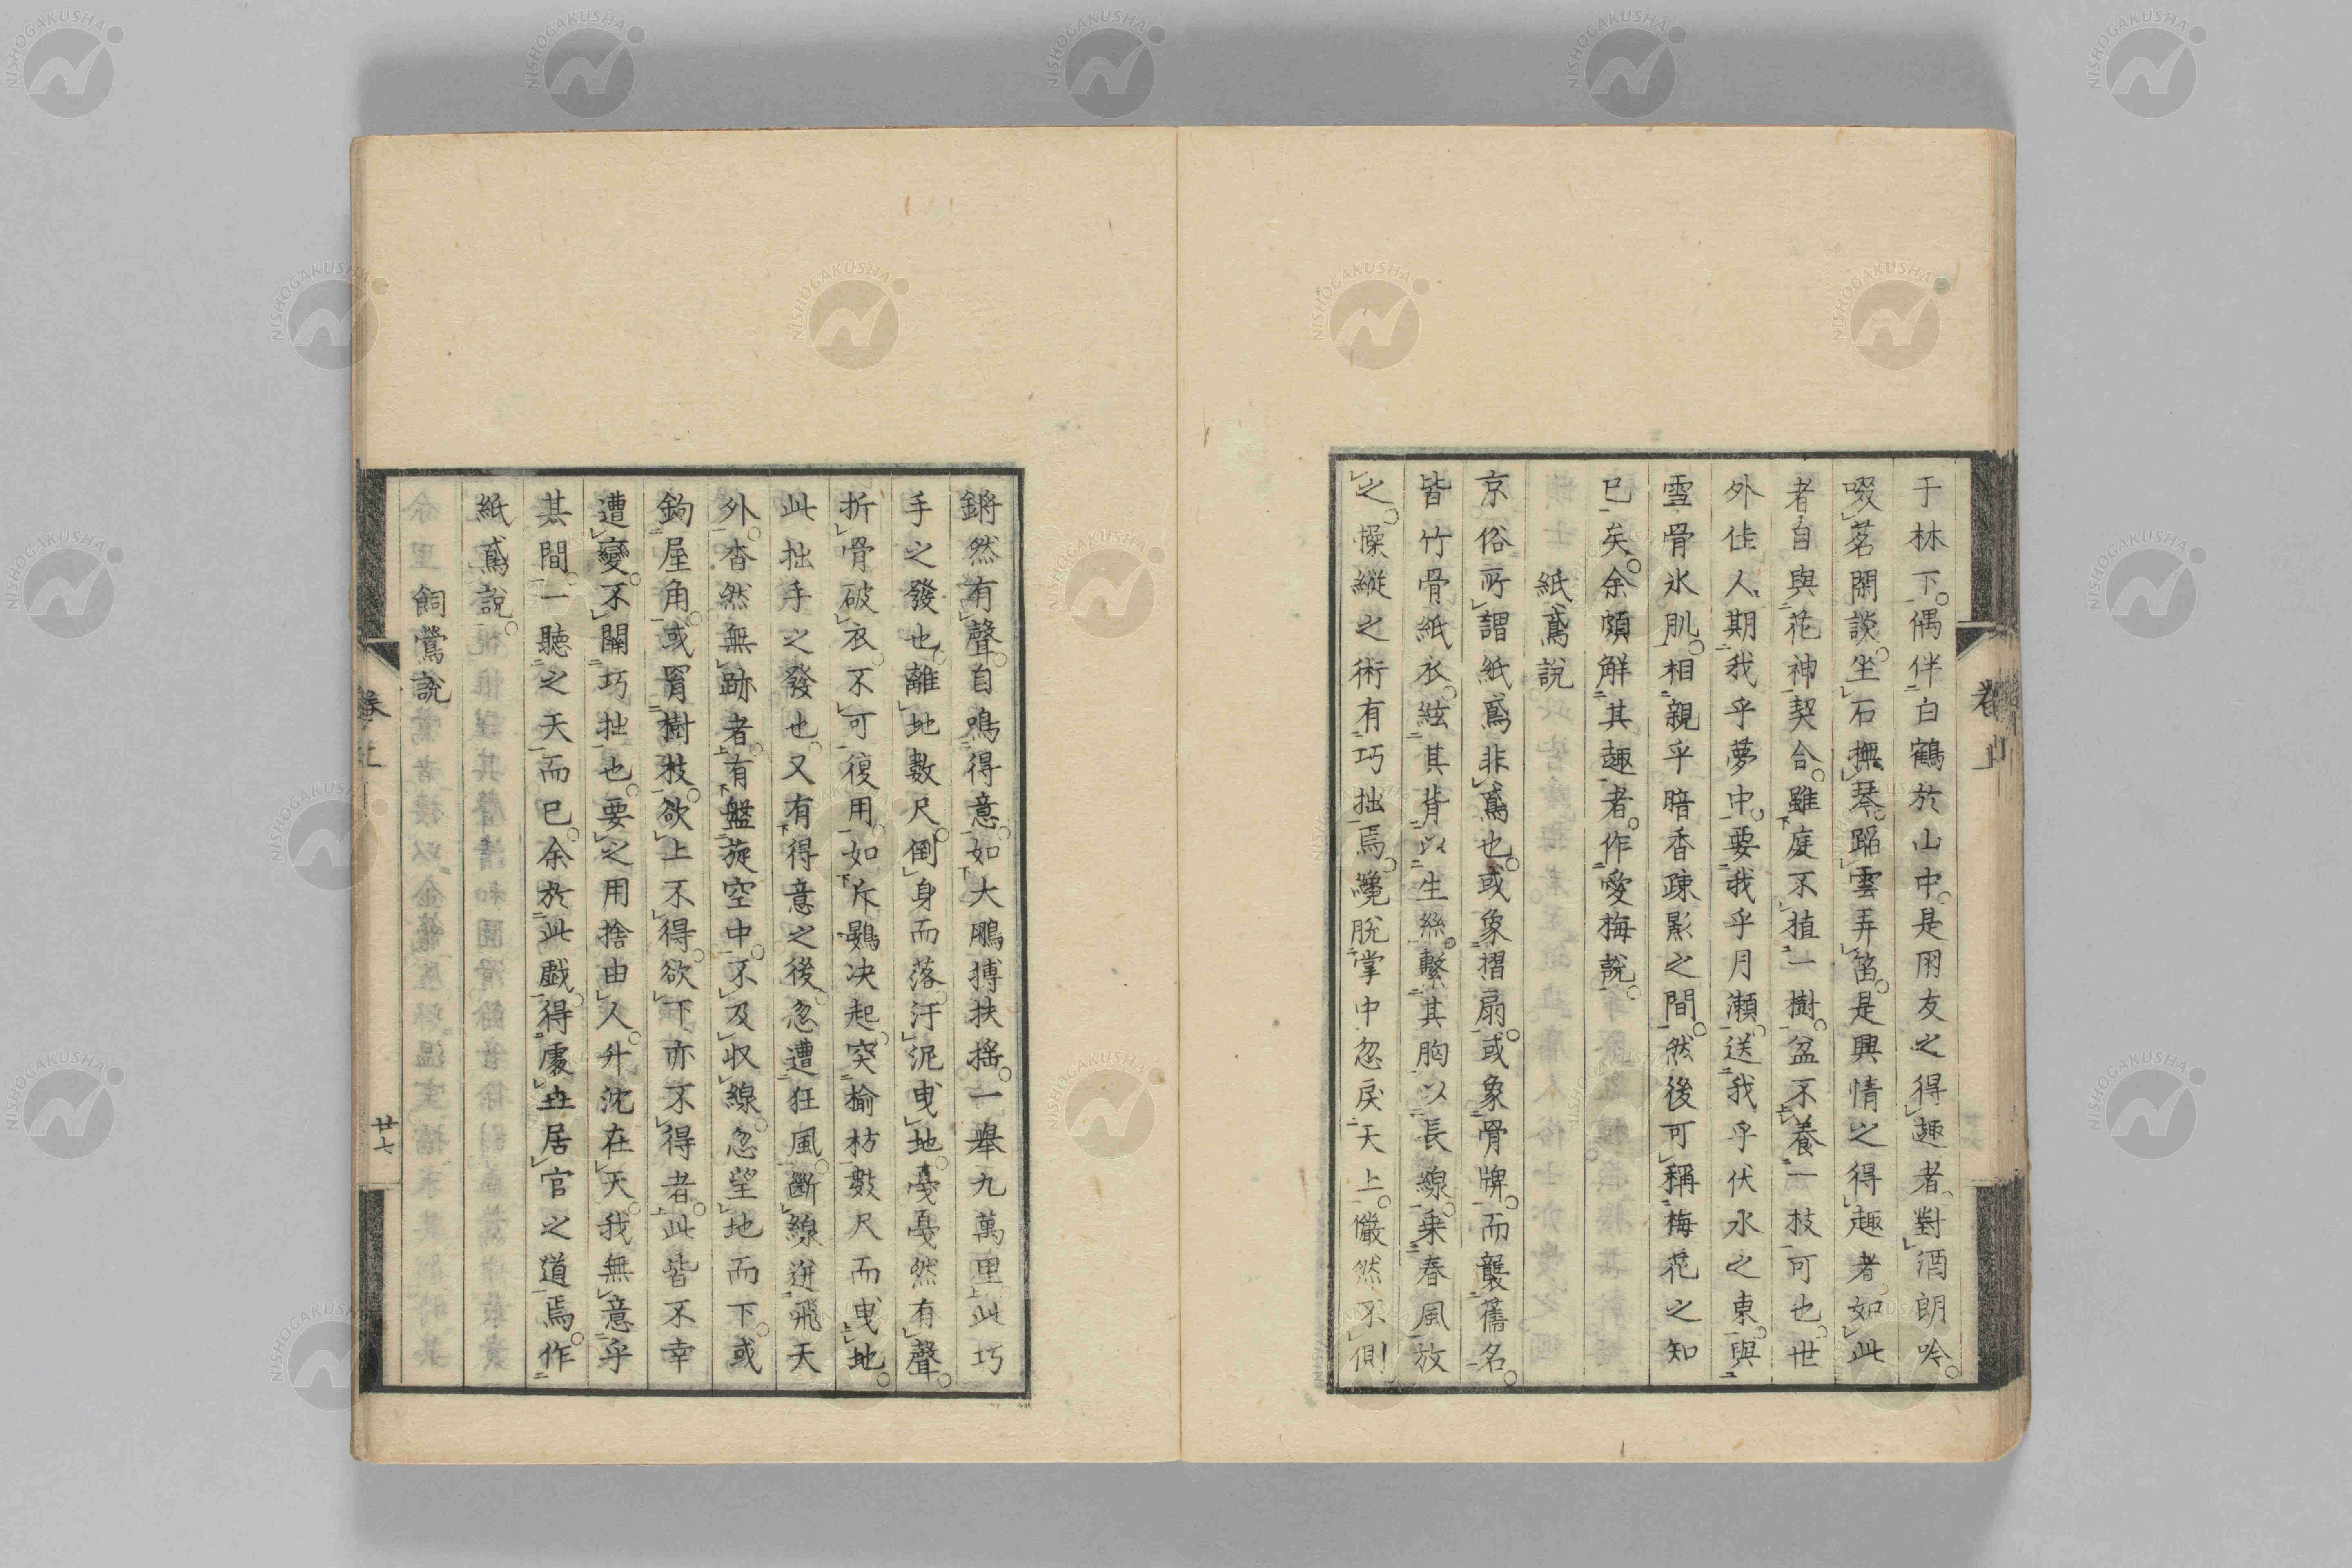 于林下。偶伴白鶴於山中。是用友之得趣者。對酒朗吟。
啜茗閑談。坐石撫琴。蹈雲弄笛。是興情之得趣者。如此
者自與花神契合。雖庭不植一樹。盆不養一枝可也。世
外佳人期我乎夢中。要我乎月瀬。送我乎伏水之東。與
雪骨氷肌。相親乎暗香疎影之間。然後可稱梅花之知
已矣。余頗解其趣者。作愛梅說。
紙鳶說
京俗所謂紙鳶非鳶也。或象摺扇。或象骨牌。而襲舊名。
皆竹骨紙衣。絃其背以生絲。繫其胸以長線。乗春風放
之。操縦之術有巧拙焉。纔脫掌中忽戾天上。儼然不傾
鏘然有聲。自鳴得意。如大鵬摶扶搖。一舉九萬里此巧
手之發也。離地數尺。倒身而落。汙泥曳地。戞戞然有聲。
折骨破衣。不可復用。如斥鷃决起。突楡枋數尺而曳地。
此拙手之發也。又有得意之後。忽遭狂風。斷線逬飛天
外。杳然無跡者。有盤旋空中。不及収線。忽望地而下。或
鈎屋角。或罥樹枝。欲上不得。欲下亦不得者。此皆不幸
遭變。不關巧拙也。要之用捨由人。升沈在天。我無意乎
其間。一聽之天而已。余於此戯。得處世居官之道焉。作
紙鳶說。
飼鶯說
卷上
廿七
NISHOGAKUSHA